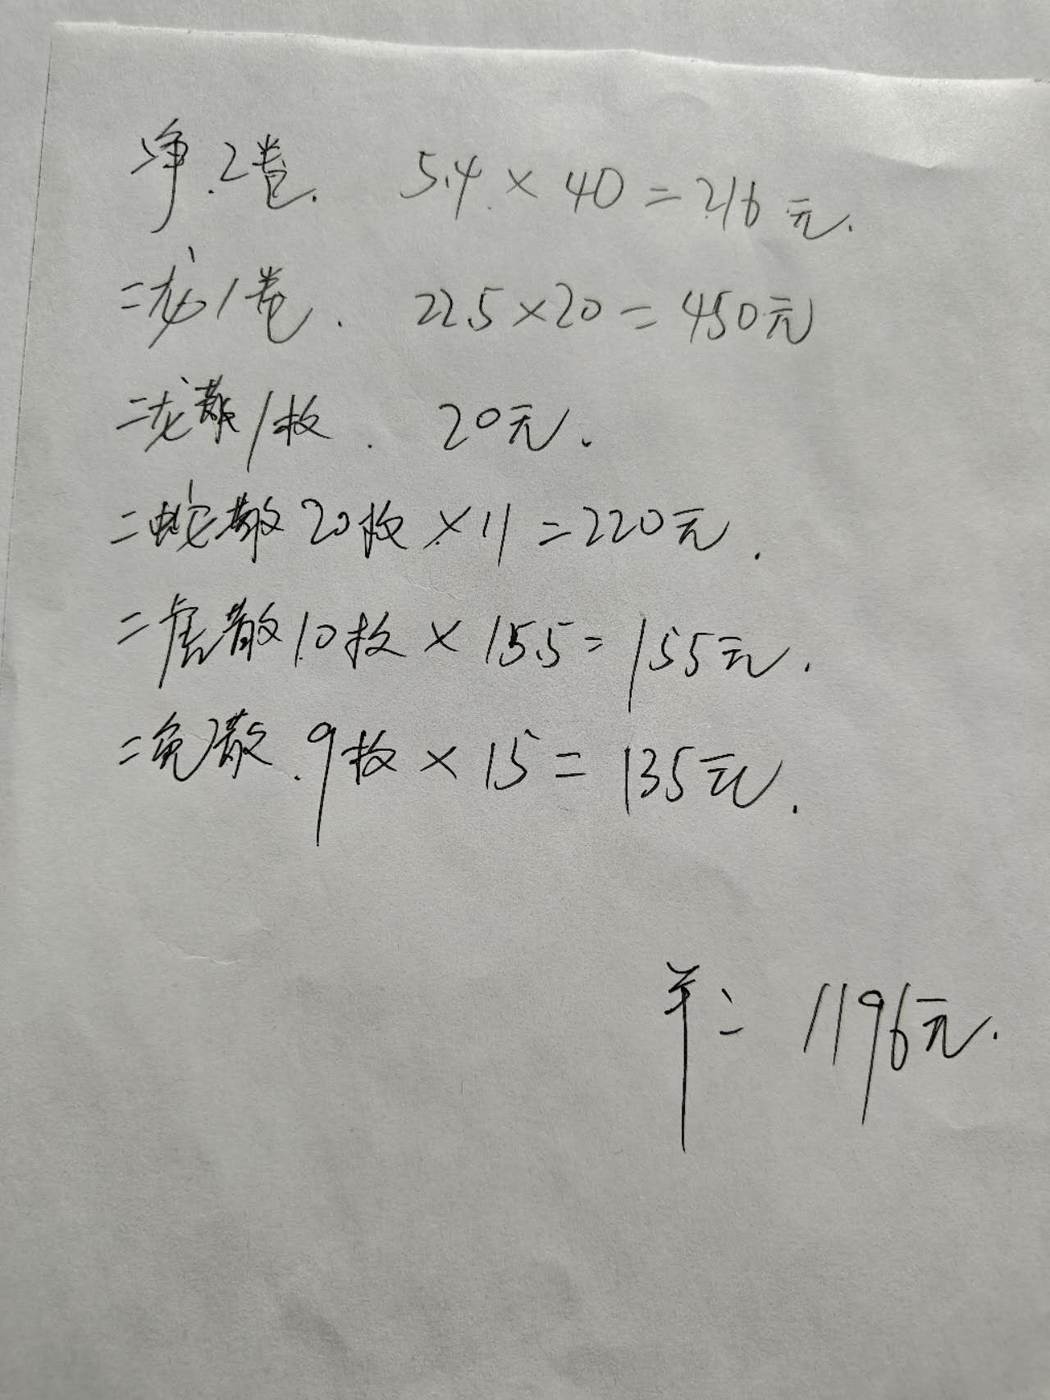 净.2卷. 5.4×40=216元.
二龙1卷. 22.5×20=450元
二龙散1枚. 20元.
二蛇散20枚×11=220元.
二虎散10枚×15.5=155元.
二兔散.9枚×15=135元.
1196元.